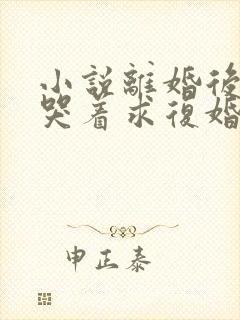 小說離婚後
哭着求復婚
申正泰